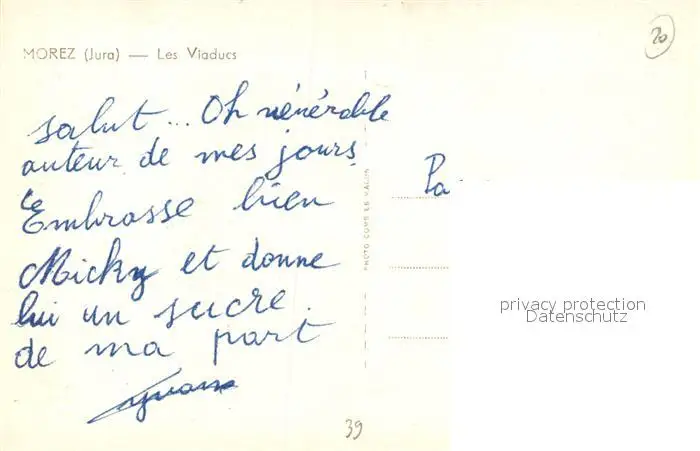 20
MOREZ (Jura) — Les Viaducs
salut... Oh vénérable
auteur de mes jours.
Embrasse bien
Micky et donne
lui un sucre.
de ma part
Pa
PHOTO COMB LE MACON
privacy protection
Datenschutz
39